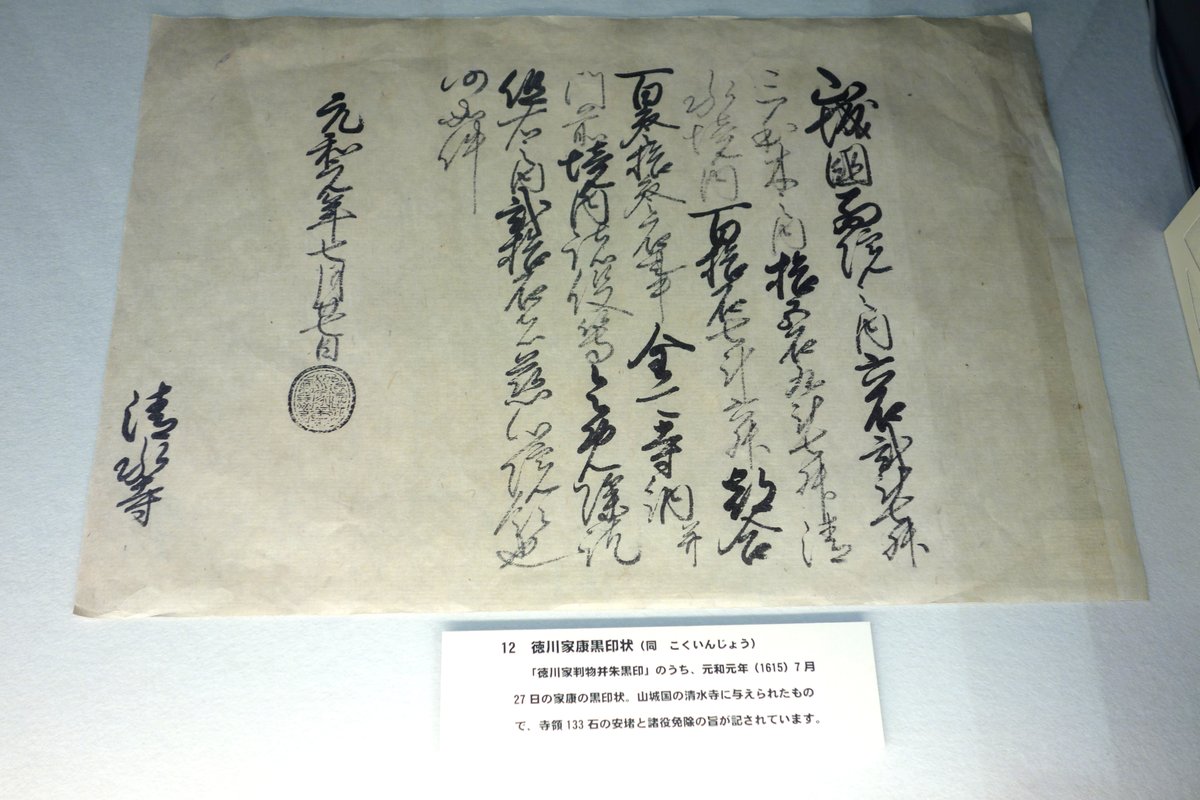 山城國西院之内六石貳斗七升
之内拾五石九斗七升清
水境内百拾石七斗六升都合
百参拾参石事全可寺納并
門前境内諸役等令免除訖
但右之内貳拾石者慈心院
仍如件
元和元年七月廿七日
清水寺
12 徳川家康黒印状（同 こくいんじょう）
「徳川家判物并朱黒印」のうち、元和元年（1615）7月
27日の家康の黒印状。山城国の清水寺に与えられたもの
で、寺領133石の安堵と諸役免除の旨が記されています。